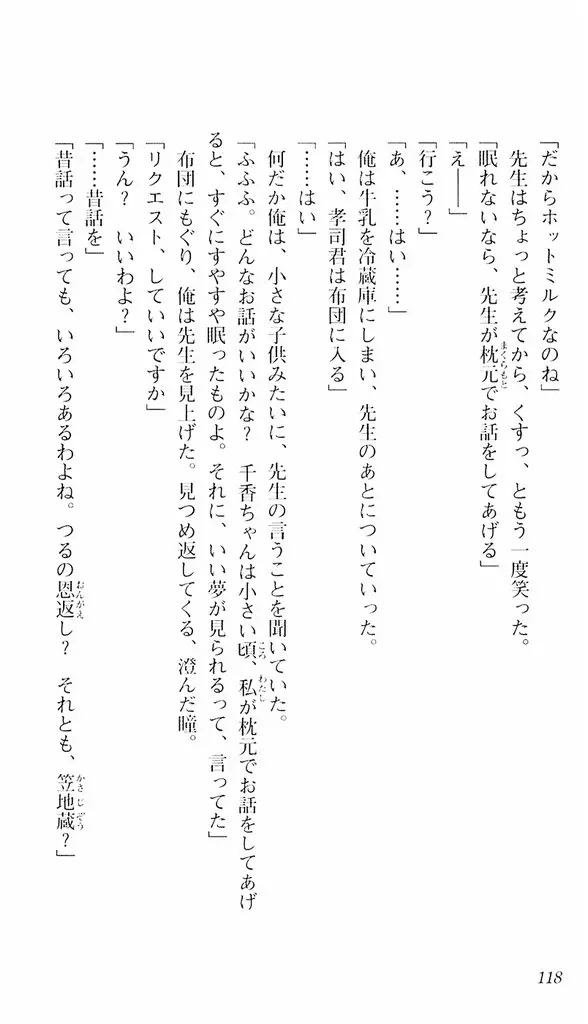 「だからホットミルクなのね」
先生はちょっと考えてから、くすっ、ともう一度笑った。
「眠れないなら、先生が枕元でお話をしてあげる」
「え――」
「行こう？」
「あ、……はい……」
俺は牛乳を冷蔵庫にしまい、先生のあとについていった。
「はい、孝司君は布団に入る」
「……はい」
何だか俺は、小さな子供みたいに、先生の言うことを聞いていた。
「ふふふ。どんなお話がいいかな？　千香ちゃんは小さい頃、私が枕元でお話をしてあげ
ると、すぐにすやすや眠ったものよ。それに、いい夢が見られるって、言ってた」
布団にもぐり、俺は先生を見上げた。見つめ返してくる、澄んだ瞳。
「リクエスト、していいですか」
「うん？　いいわよ？」
「……昔話を」
「昔話って言っても、いろいろあるわよね。つるの恩返し？　それとも、笠地蔵？」
118